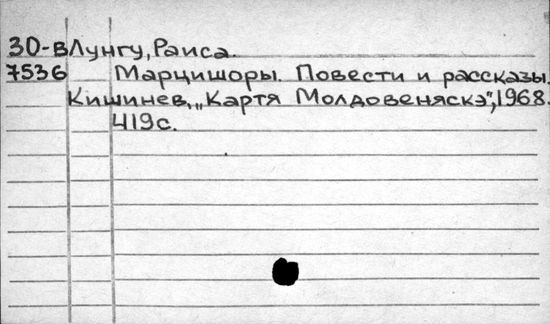 30-в Лунгу, Раиса.
7536 Марцишоры. Повести и рассказы.
Кишинев, „Картя Молдовеняскэ", 1968.
419с.